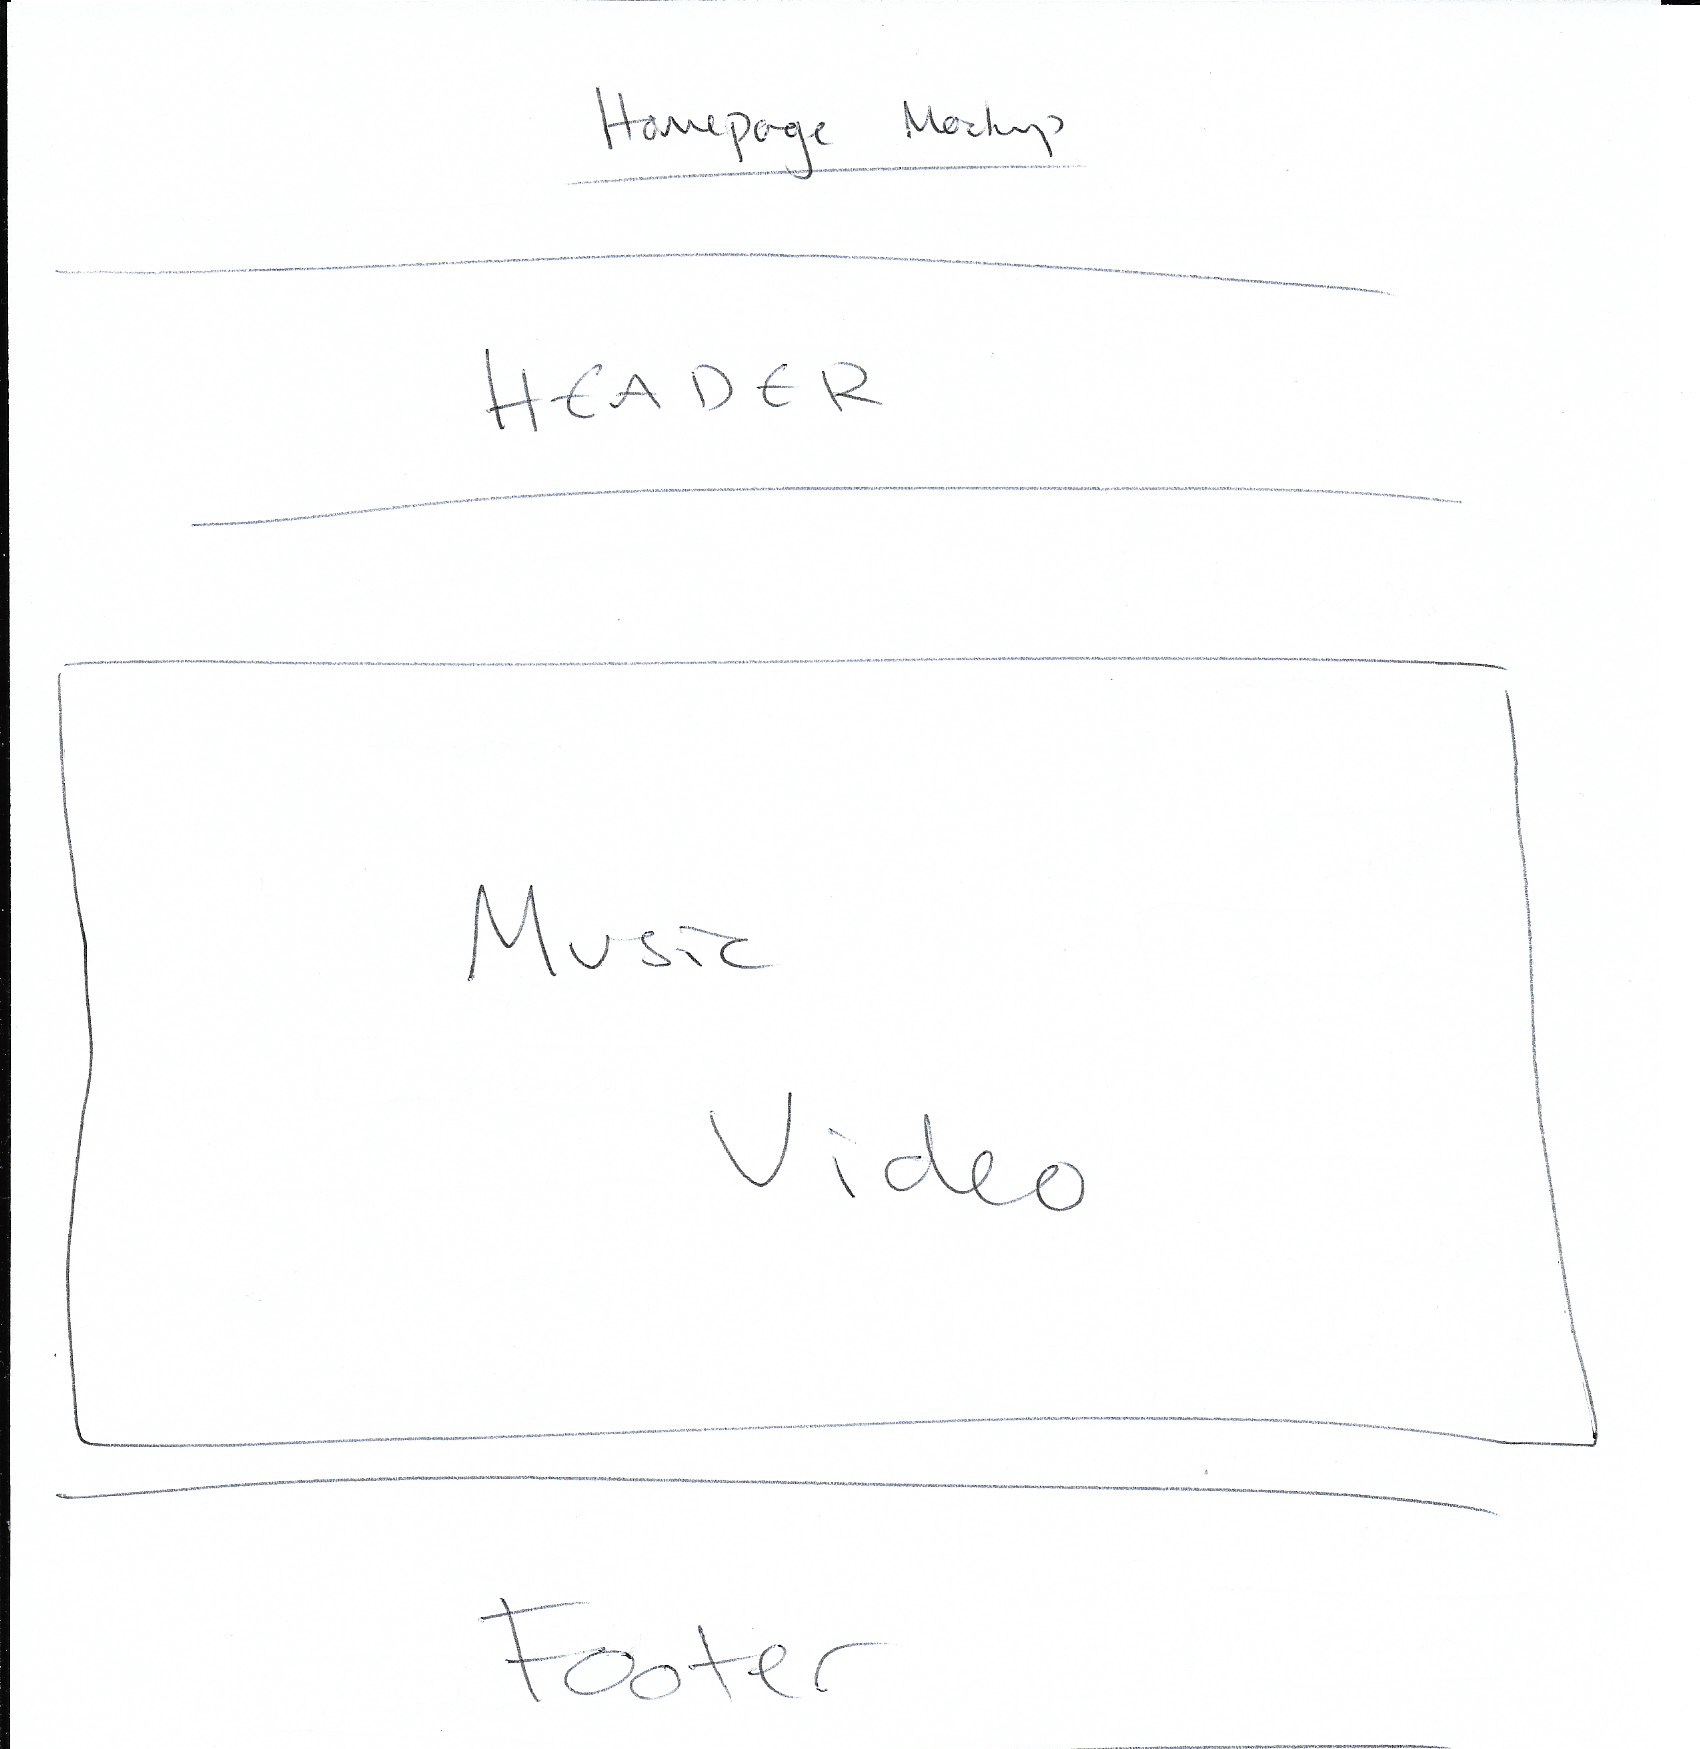 Homepage Mockup
HEADER
Music
Video
Footer